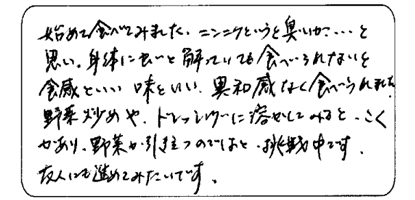 始めて食べてみました、ニンニクというと臭いが…と
思い、身体に良いと解っていても食べられないと
食感といい味といい、異和感なく食べられました
野菜炒めや、ドレッシングに溶かしてみると、こく
があり、野菜が引き立つのではと、挑戦中です、
友人にも進めてみたいです、